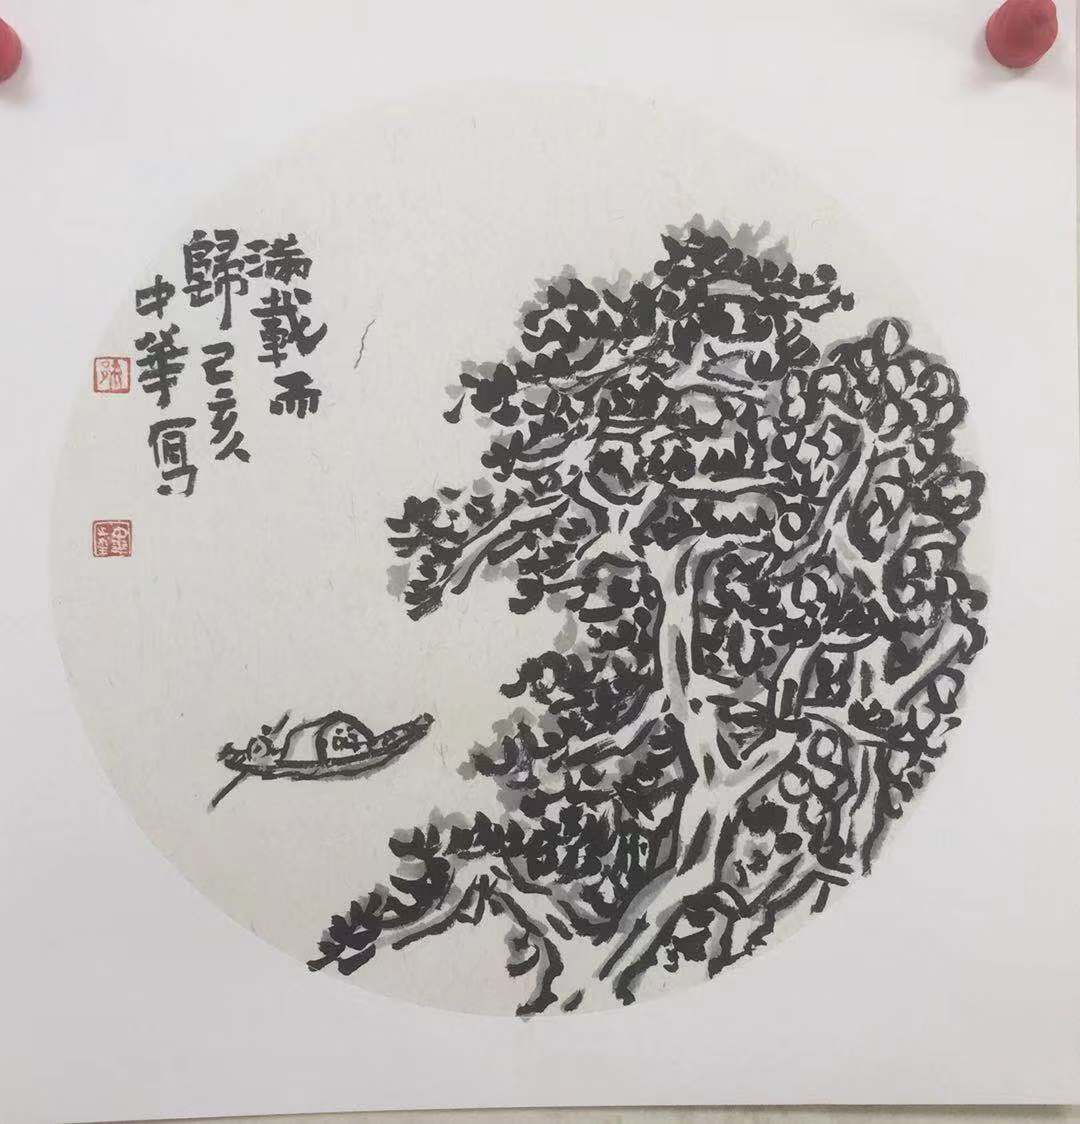 满載而
歸己亥
中華寫